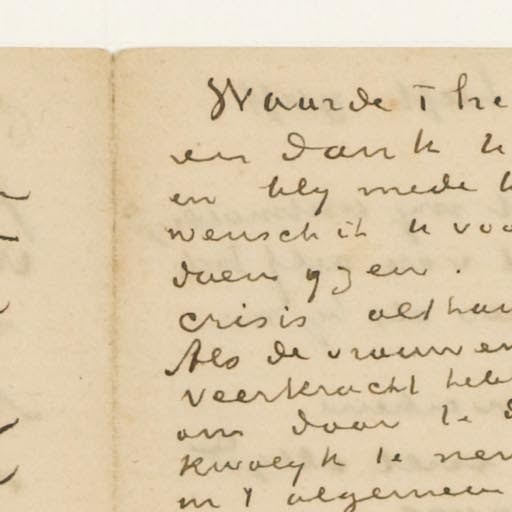 Waarde The
en dank u
en bly mede
wensch ik u voo
doen
crisis althan
Als de vrouwen
veerkracht heb
om daar te d
te
in 't algemeen